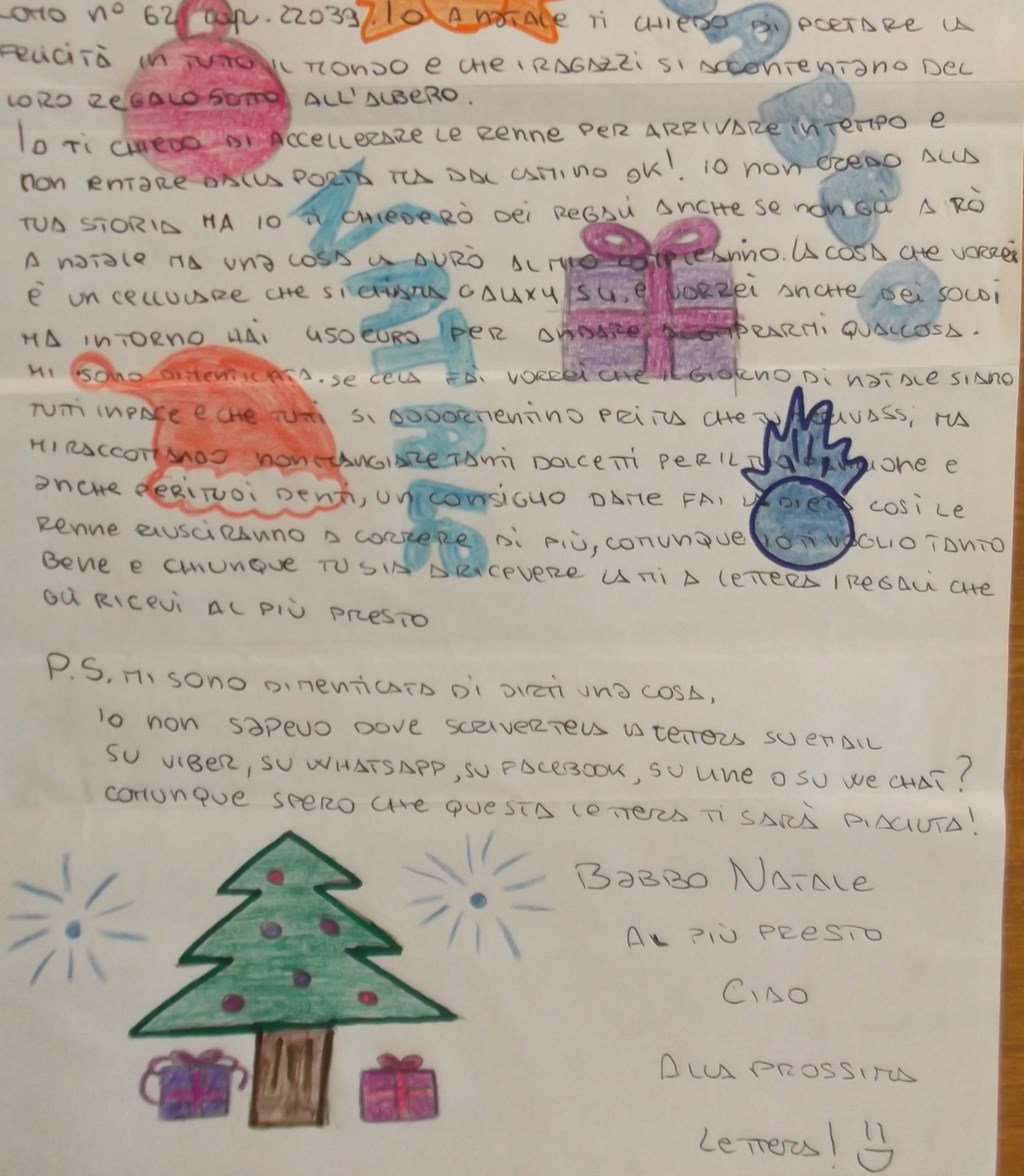 n° 62 cap. 22039. Io A NATALE TI CHIEDO DI PORTARE LA
FELICITÀ IN TUTTO IL MONDO E CHE I RAGAZZI SI ACCONTENTANO DEL
LORO REGALO SOTTO ALL'ALBERO.
Io TI CHIEDO DI ACCELLERARE LE RENNE PER ARRIVARE IN TEMPO E
NON ENTARE DALLA PORTA MA DAL CAMINO OK! IO NON CREDO ALLA
TUA STORIA MA IO TI CHIEDERÒ DEI REGALI ANCHE SE NON GLI A RÒ
A NATALE MA UNA COSA LA AURÒ AL MIO COMPLEANNO. LA COSA CHE VORREI
È UN CELLULARE CHE SI CHIAMA GALAXY S4. E VORREI ANCHE DEI SOLDI
MA INTORNO HAI 450 EURO PER ANDARE A COMPRARMI QUALCOSA.
MI SONO DIMENTICATA. SE CELA FAI VORREI CHE IL GIORNO DI NATALE SIANO
TUTTI INPACE E CHE TUTTI SI ADDORMENTINO PRIMA CHE TU ARRIVASSI, MA
MI RACCOMANDO NON MANGIARE TANTI DOLCETTI PER IL TUO E
ANCHE PER I TUOI DENTI, UN CONSIGLIO DAME FAI LA DIETA COSÌ LE
RENNE RIUSCIRANNO A CORRERE DI PIÙ, COMUNQUE IO TI VOGLIO TANTO
BENE E CHIUNQUE TU SIA A RICEVERE LA MI A LETTERA I REGALI CHE
GLI RICEVI AL PIÙ PRESTO
P.S. MI SONO DIMENTICATA DI DIRTI UNA COSA,
IO NON SAPEVO DOVE SCRIVERTELA LA LETTERA SU EMAIL
SU VIBER, SU WHATSAPP, SU FACEBOOK, SU LINE O SU WE CHAT?
COMUNQUE SPERO CHE QUESTA LETTERA TI SARÀ PIACIUTA!
BABBO NATALE
AL PIÙ PRESTO
CIAO
ALLA PROSSIMA
LETTERA!